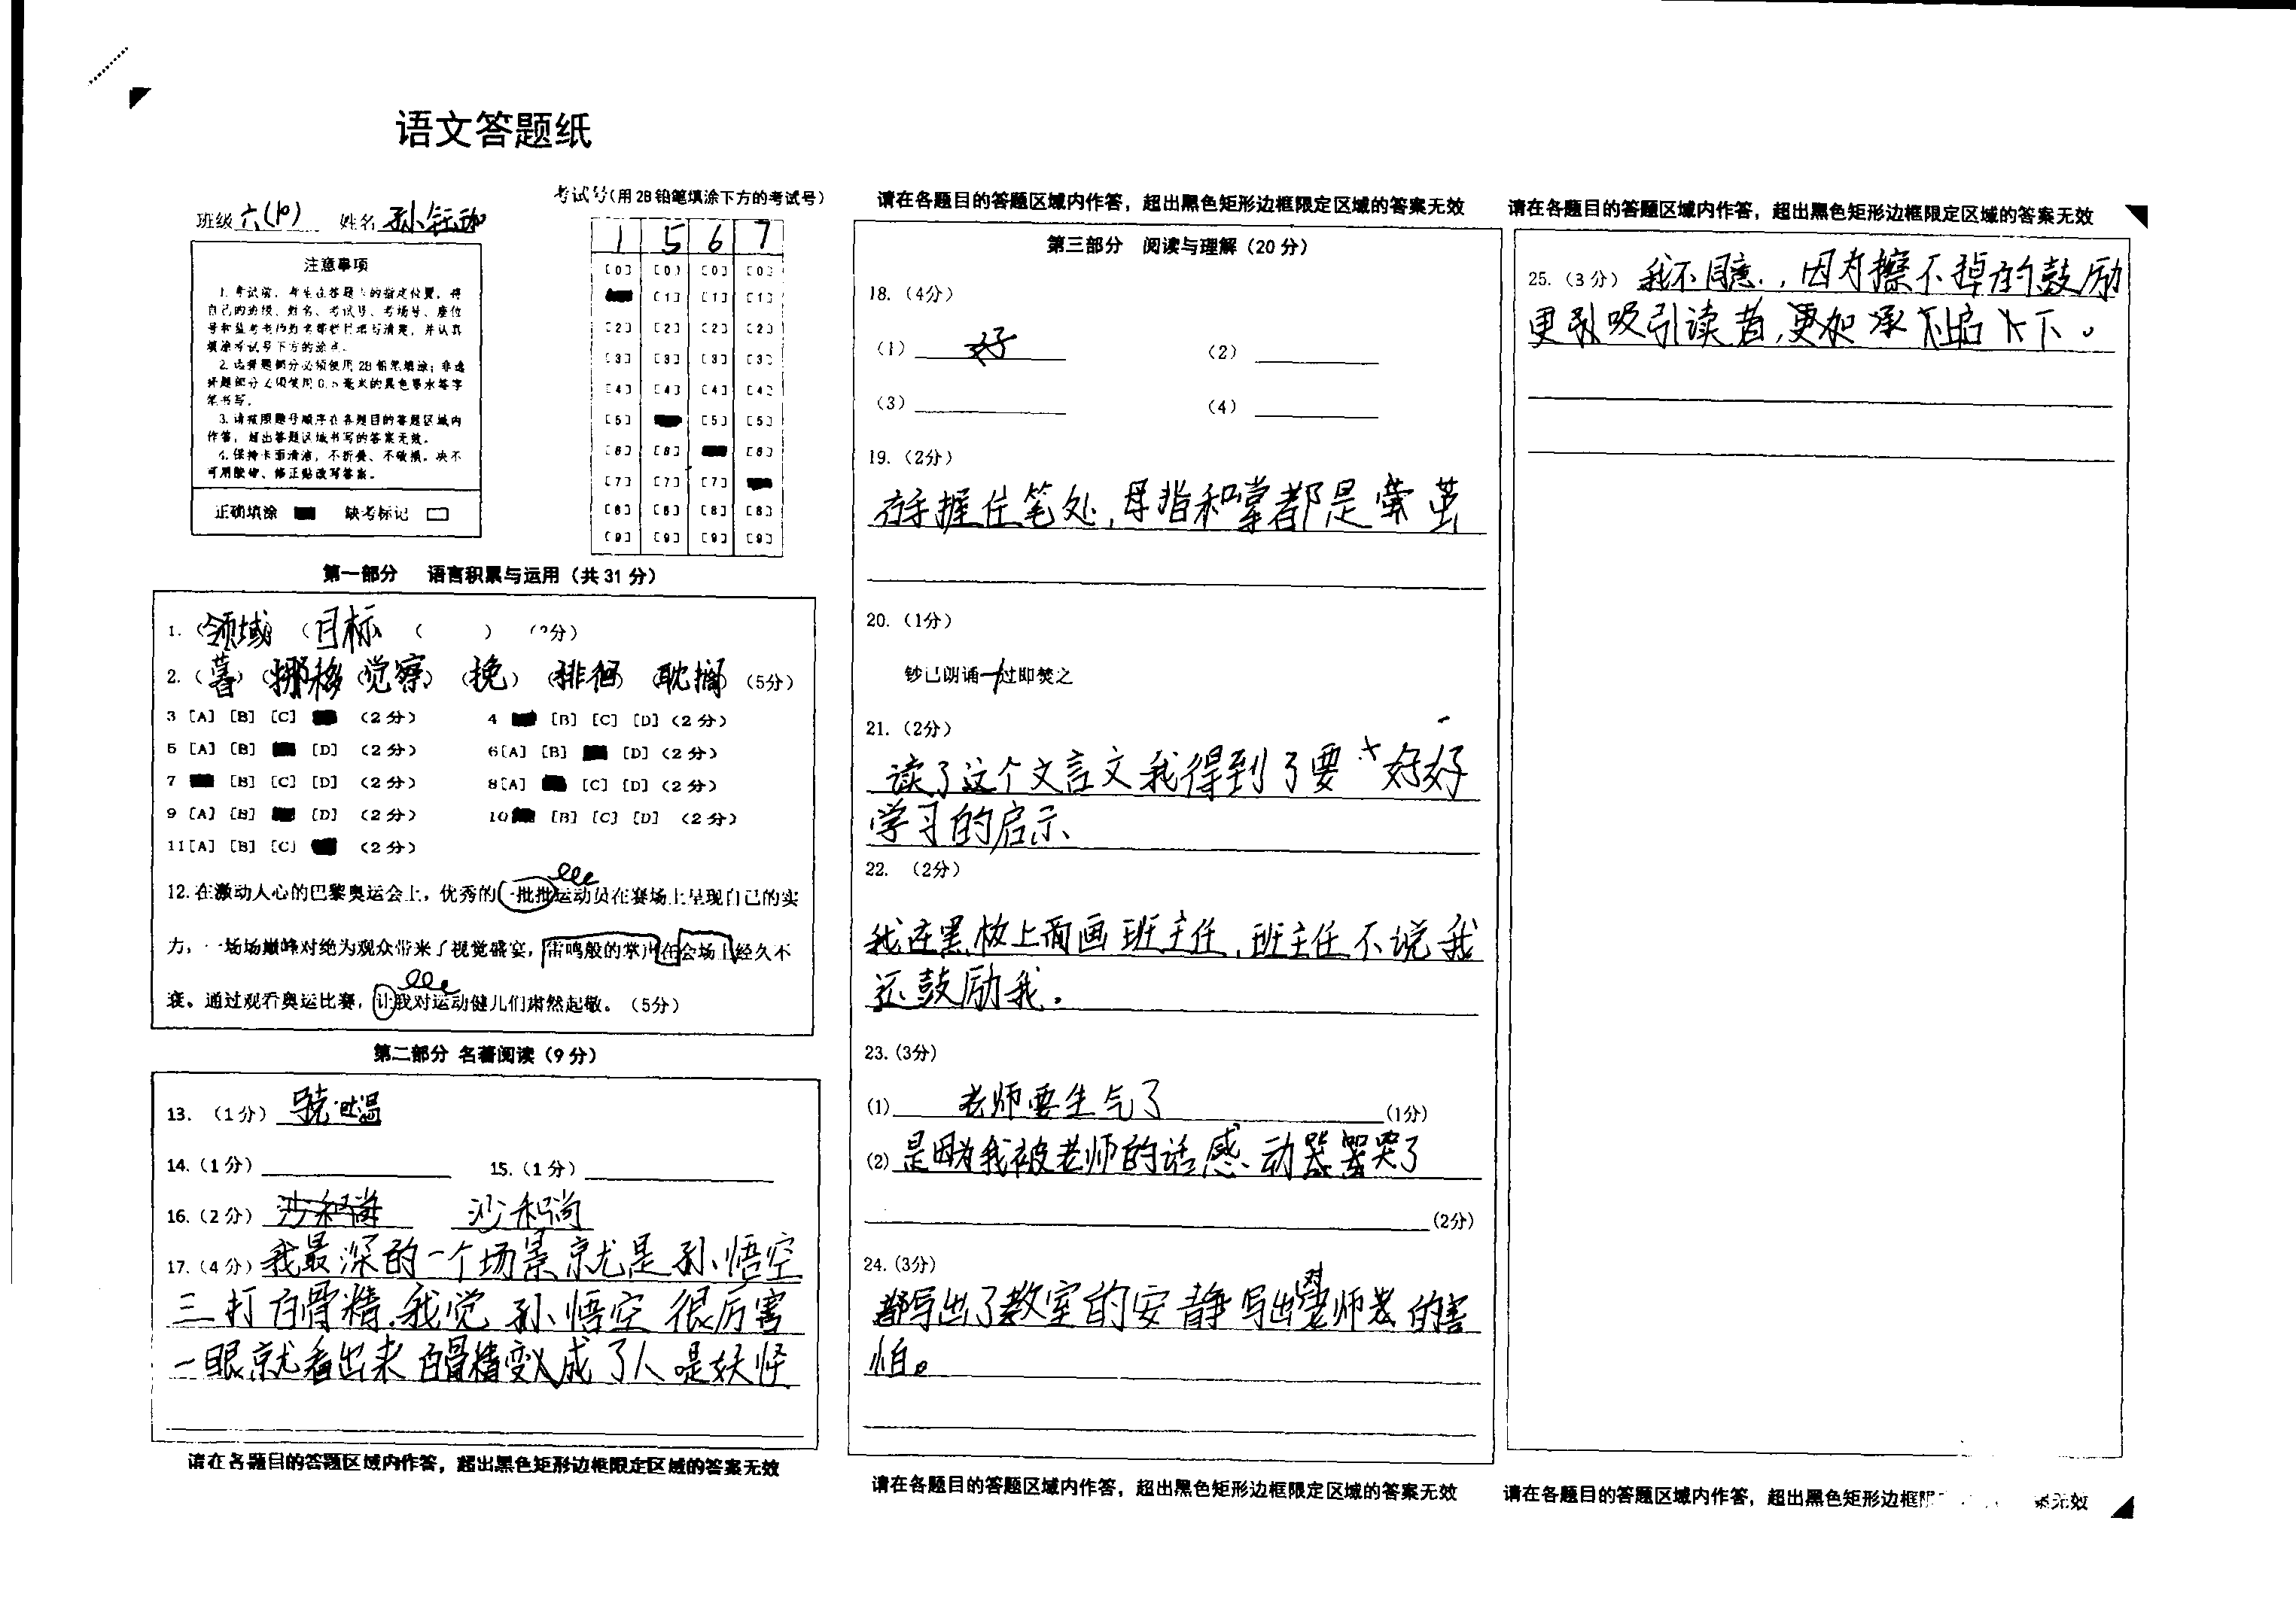 语文答题纸
班级 六(10) 姓名 孙钰珈
考试号(用2B铅笔填涂下方的考试号)
1 5 6 7
[0] [0] [0] [0]
[1] [1] [1]
[2] [2] [2] [2]
[3] [3] [3] [3]
[4] [4] [4] [4]
[5] [5] [5]
[6] [6] [6]
[7] [7] [7]
[8] [8] [8] [8]
[9] [9] [9] [9]
注意事项
1.考试前,考生在答题卡的指定位置,将
自己的班级、姓名、考试号、考场号、座位
号和监考老师的名字栏目填写清楚,并认真
填涂考试号下方的涂点。
2.选择题部分必须使用2B铅笔填涂;非选
择题部分必须使用0.5毫米的黑色墨水签字
笔书写。
3.请按照题号顺序在各题目的答题区域内
作答,超出答题区域书写的答案无效。
4.保持卡面清洁,不折叠、不破损。决不
可用胶带、修正贴改写答案。
正确填涂 缺考标记
第一部分 语言积累与运用(共31分)
1.(领域)(目标)( )(3分)
2.(暮)(挪移)(觉察)(挽)(徘徊)(耽搁)(5分)
3 [A] [B] [C] (2分) 4 [B] [C] [D] (2分)
5 [A] [B] [D] (2分) 6[A] [B] [D] (2分)
7 [B] [C] [D] (2分) 8[A] [C] [D] (2分)
9 [A] [B] [D] (2分) 10 [B] [C] [D] (2分)
11[A] [B] [C] (2分)
12.在激动人心的巴黎奥运会上,优秀的一批批运动员在赛场上呈现自己的实
力,一场场巅峰对绝为观众带来了视觉盛宴,雷鸣般的掌声在会场上经久不
衰。通过观看奥运比赛,让我对运动健儿们肃然起敬。(5分)
第二部分 名著阅读(9分)
13.(1分)
14.(1分) 15.(1分)
16.(2分) 沙和尚 沙和尚
17.(4分) 我最深的一个场景就是孙悟空
三打白骨精.我觉 孙悟空 很厉害
一眼就看出来 白骨精变成了人 是妖怪
请在各题目的答题区域内作答,超出黑色矩形边框限定区域的答案无效
请在各题目的答题区域内作答,超出黑色矩形边框限定区域的答案无效
第三部分 阅读与理解(20分)
18.(4分)
(1) 好 (2)
(3) (4)
19.(2分)
右手握住笔处,母指和掌都是 茧
20.(1分)
钞已朗诵一/过即焚之
21.(2分)
读了这个文言文我得到了要 好好
学习的启示、
22.(2分)
我在黑板上面画班主任,班主任不说我
还鼓励我.
23.(3分)
(1) 老师要生气了 (1分)
(2) 是因为我被老师的话感动 哭了
(2分)
24.(3分)
都写出了教室的安静写出对老师 的害
怕。
请在各题目的答题区域内作答,超出黑色矩形边框限定区域的答案无效
请在各题目的答题区域内作答,超出黑色矩形边框限定区域的答案无效
25.(3分) 我不同意.,因为擦不掉的鼓励
更 吸引读者,更加承 下。
请在各题目的答题区域内作答,超出黑色矩形边框限 案无效